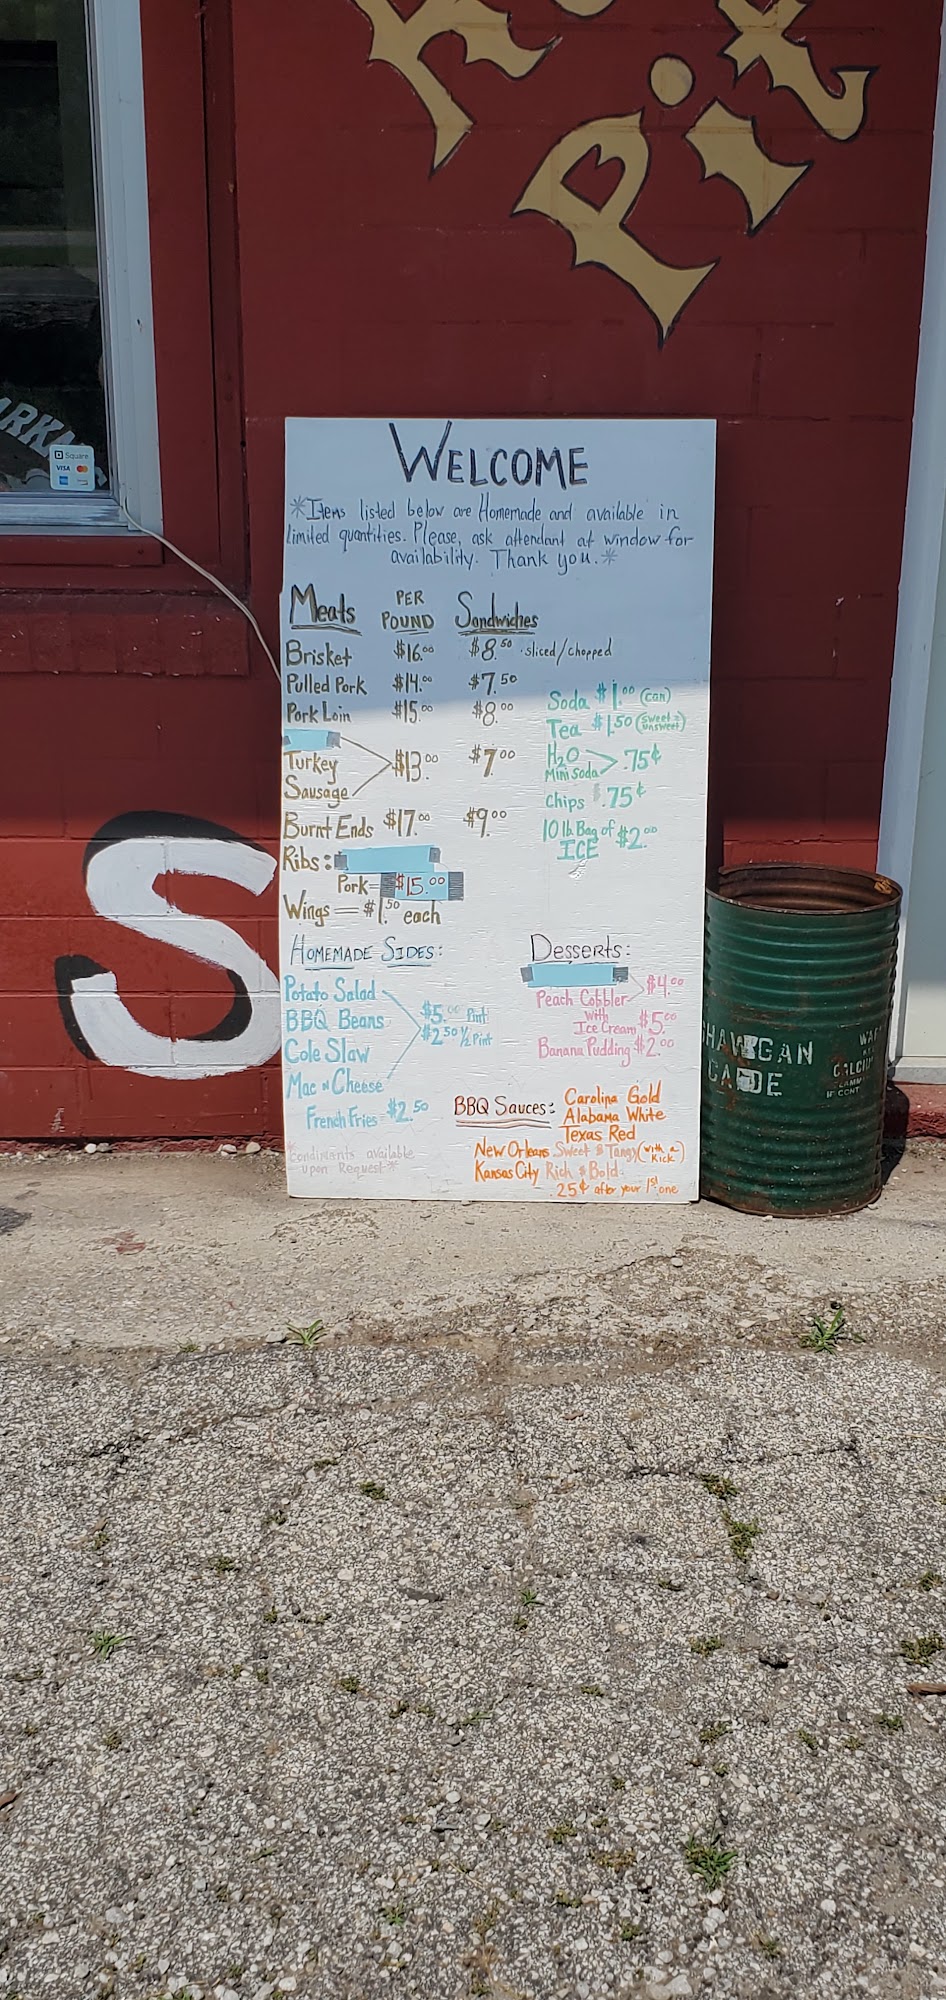 Pit
ARK
Square
VISA
WELCOME
*Items listed below are Homemade and available in
limited quantities. Please, ask attendant at window for
availability. Thank you.*
Meats PER POUND Sandwiches
Brisket $16.00 $8.50 •sliced/chopped
Pulled Pork $14.00 $7.50
Pork Loin $15.00 $8.00
Turkey
Sausage $13.00 $7.00
Burnt Ends $17.00 $9.00
Ribs:
Pork= $15.00
Wings = $1.50 each
Soda $1.00 (can)
Tea $1.50 (sweet & unsweet)
H2O
Mini soda .75¢
Chips $.75¢
10 lb. Bag of ICE $2.00
HOMEMADE SIDES:
Potato Salad
BBQ Beans
Cole Slaw
Mac n Cheese
$5.00 Pint
$2.50 1/2 Pint
French Fries = $2.50
*Condiments available
upon Request*
Desserts:
$4.00
Peach Cobbler
with
Ice Cream $5.00
Banana Pudding $2.00
BBQ Sauces: Carolina Gold
Alabama White
Texas Red
New Orleans Sweet & Tangy (with a Kick)
Kansas City Rich & Bold
.25¢ after your 1st one
S